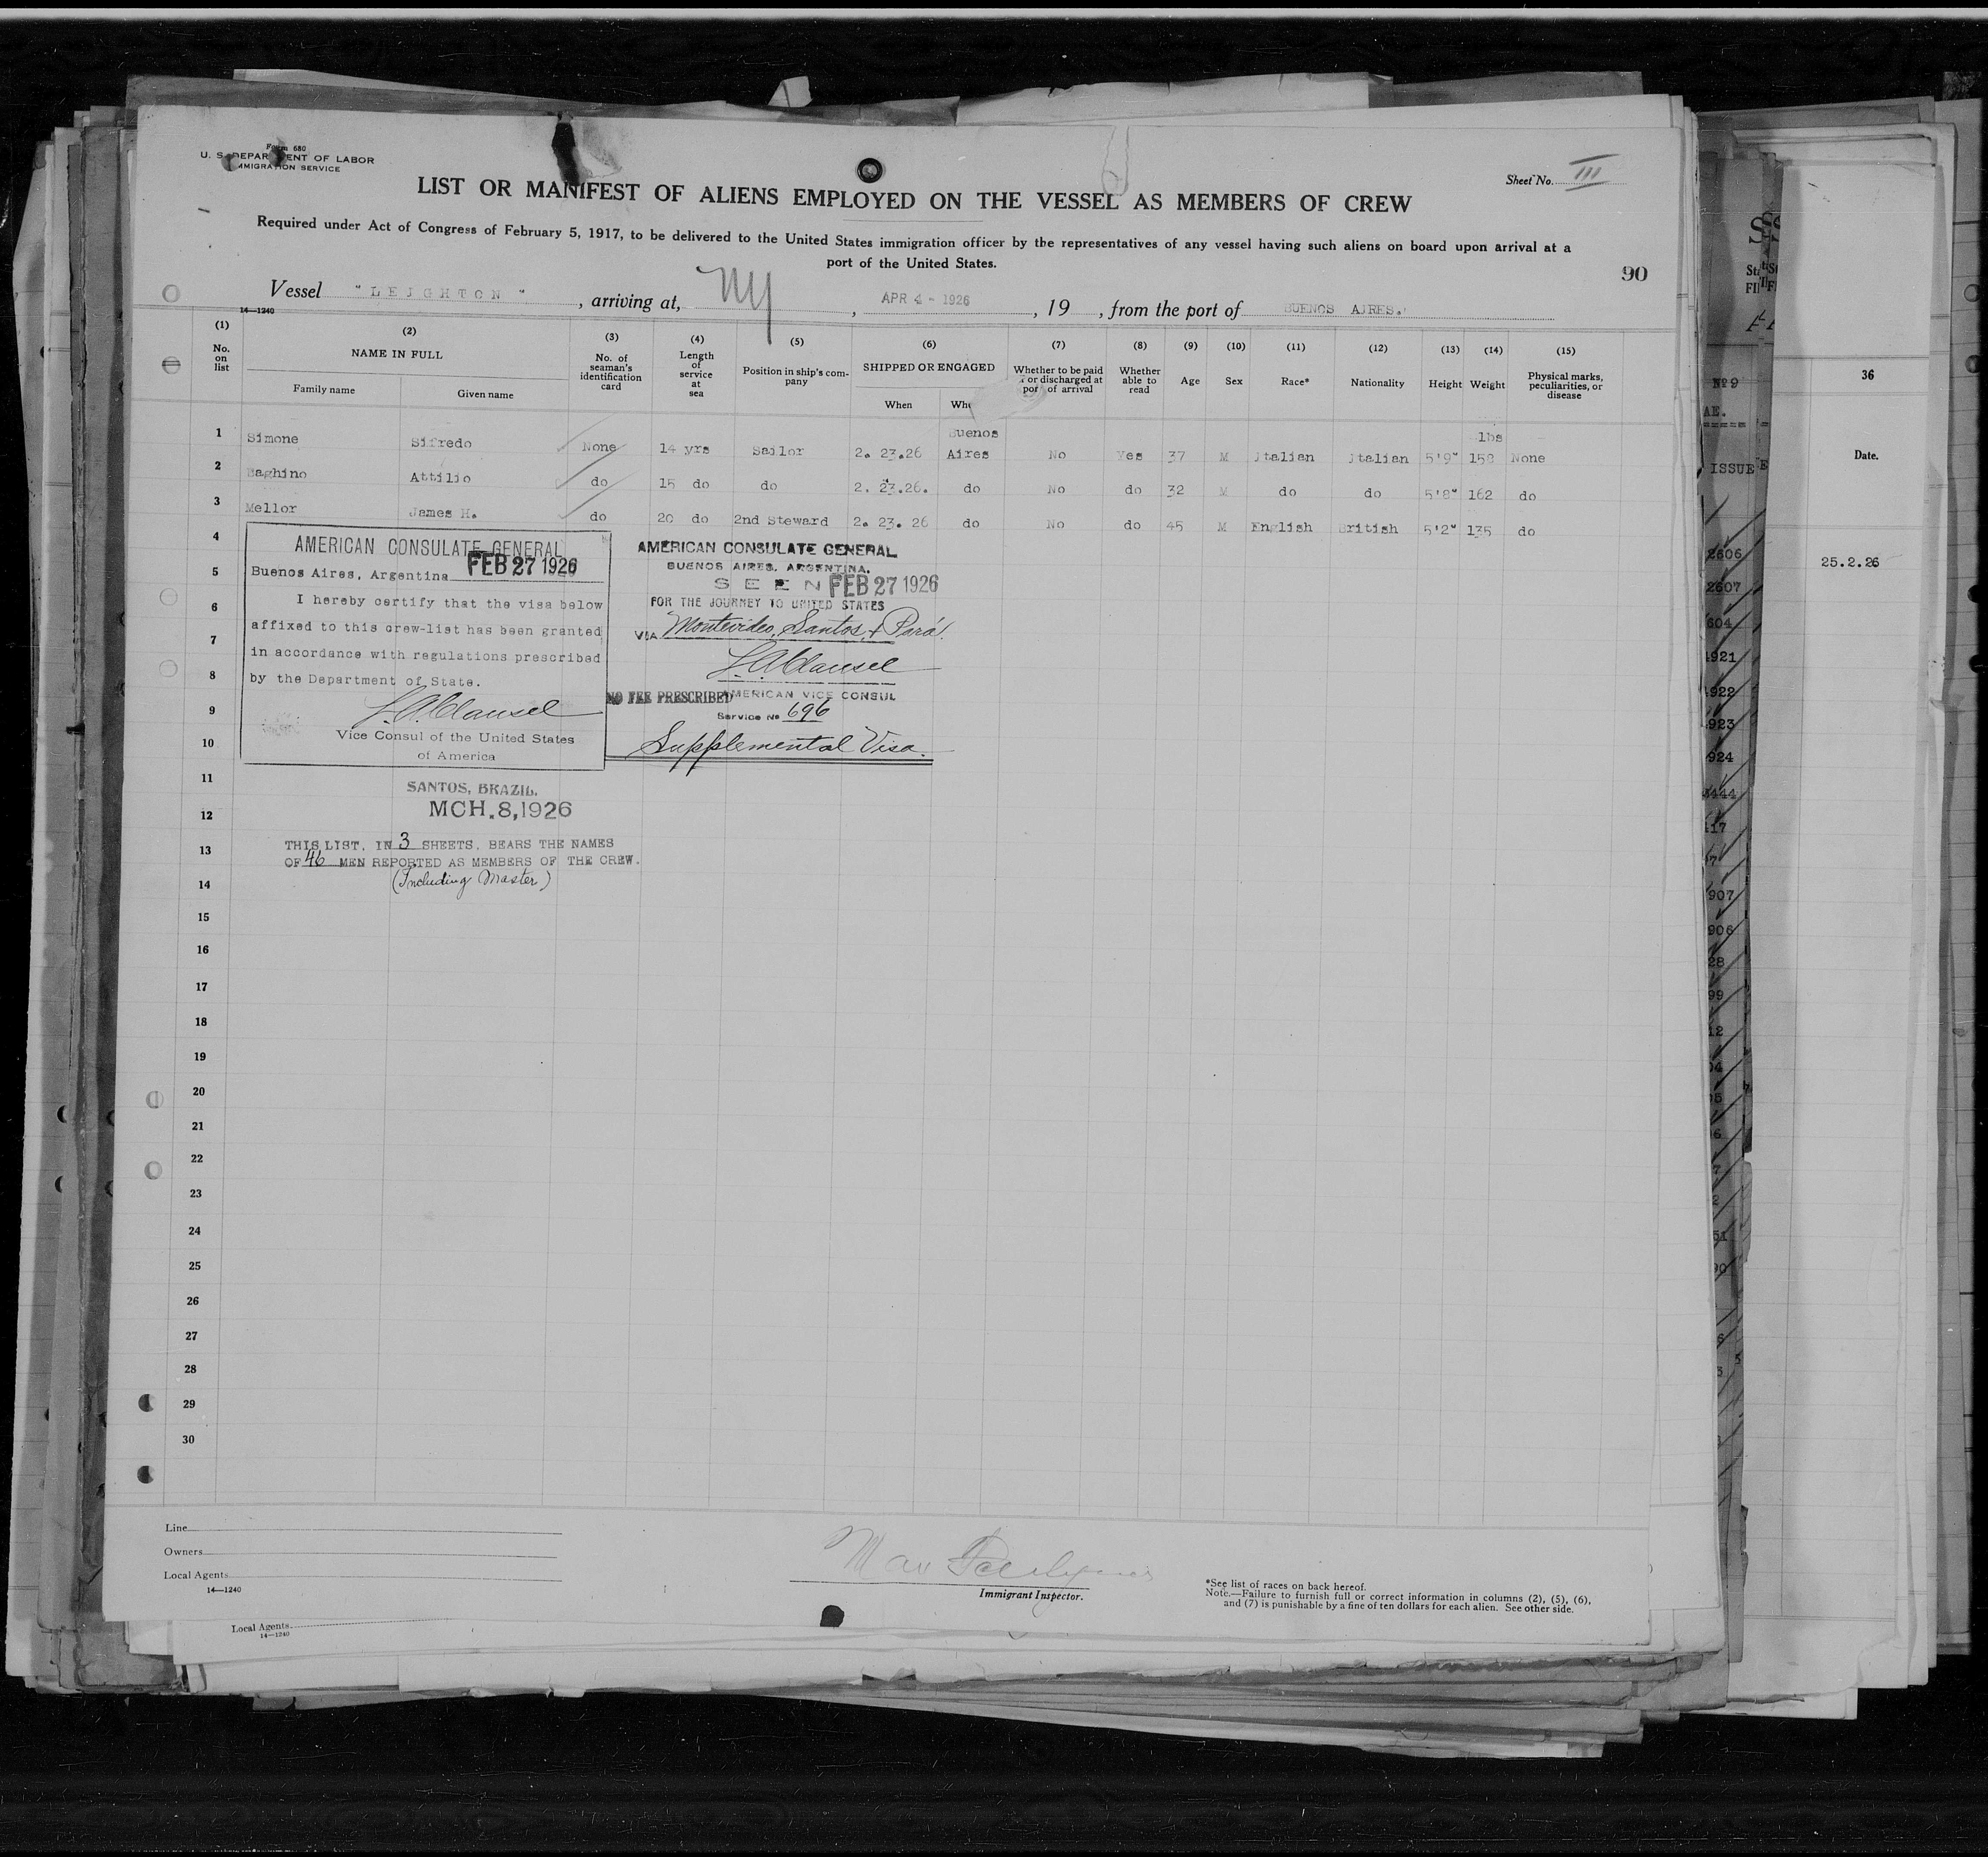 Form 680
U. S. DEPARTMENT OF LABOR
IMMIGRATION SERVICE
Sheet No. III
LIST OR MANIFEST OF ALIENS EMPLOYED ON THE VESSEL AS MEMBERS OF CREW
Required under Act of Congress of February 5, 1917, to be delivered to the United States immigration officer by the representatives of any vessel having such aliens on board upon arrival at a
port of the United States.
90
Vessel "LEIGHTON", arriving at, NY, APR 4 - 1926, 19 , from the port of BUENOS AIRES.
14—1240
(1) No. on list
(2) NAME IN FULL
Family name Given name
(3) No. of seaman's identification card
(4) Length of service at sea
(5) Position in ship's company
(6) SHIPPED OR ENGAGED
When
(7) Whether to be paid or discharged at port of arrival
(8) Whether able to read
(9) Age
(10) Sex
(11) Race*
(12) Nationality
(13) Height
(14) Weight
(15) Physical marks, peculiarities, or disease
1 Simone Sifredo None 14 yrs Sailor 2. 23.26 Buenos Aires No Yes 37 M Italian Italian 5'9" 158 lbs None
2 Baghino Attilio do 15 do do 2. 23.26. do No do 32 M do do 5'8" 162 do
3 Mellor James H. do 20 do 2nd Steward 2. 23. 26 do No do 45 M English British 5'2" 135 do
4
5
6
7
8
9
10
11
12
13
14
15
16
17
18
19
20
21
22
23
24
25
26
27
28
29
30
AMERICAN CONSULATE GENERAL
Buenos Aires, Argentina FEB 27 1926
I hereby certify that the visa below
affixed to this crew-list has been granted
in accordance with regulations prescribed
by the Department of State.
Vice Consul of the United States
of America
AMERICAN CONSULATE GENERAL
BUENOS AIRES, ARGENTINA.
SEEN FEB 27 1926
FOR THE JOURNEY TO UNITED STATES
VIA Montevideo, Santos, & Pará.
AMERICAN VICE CONSUL
NO FEE PRESCRIBED
Service No 696
Supplemental Visa.
SANTOS, BRAZIL.
MCH.8,1926
THIS LIST, IN 3 SHEETS, BEARS THE NAMES
OF 46 MEN REPORTED AS MEMBERS OF THE CREW.
(Including Master)
Line
Owners
Local Agents
14—1240
Immigrant Inspector.
*See list of races on back hereof.
Note.—Failure to furnish full or correct information in columns (2), (5), (6),
and (7) is punishable by a fine of ten dollars for each alien. See other side.
Local Agents
14—1240
Nº 9
ISSUE
2606
2607
604
921
922
923
924
907
906
36
Date.
25.2.26